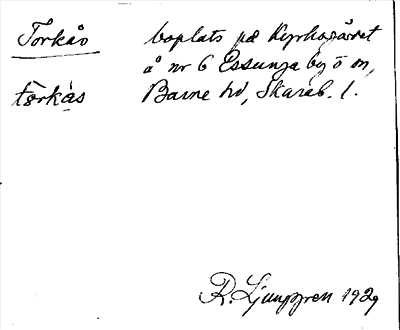 Torkås boplats på Kyrkogärdet
å nr 6 Essunga by o m,
torkás Barne hd, Skarab. l.
R. Ljunggren 1929